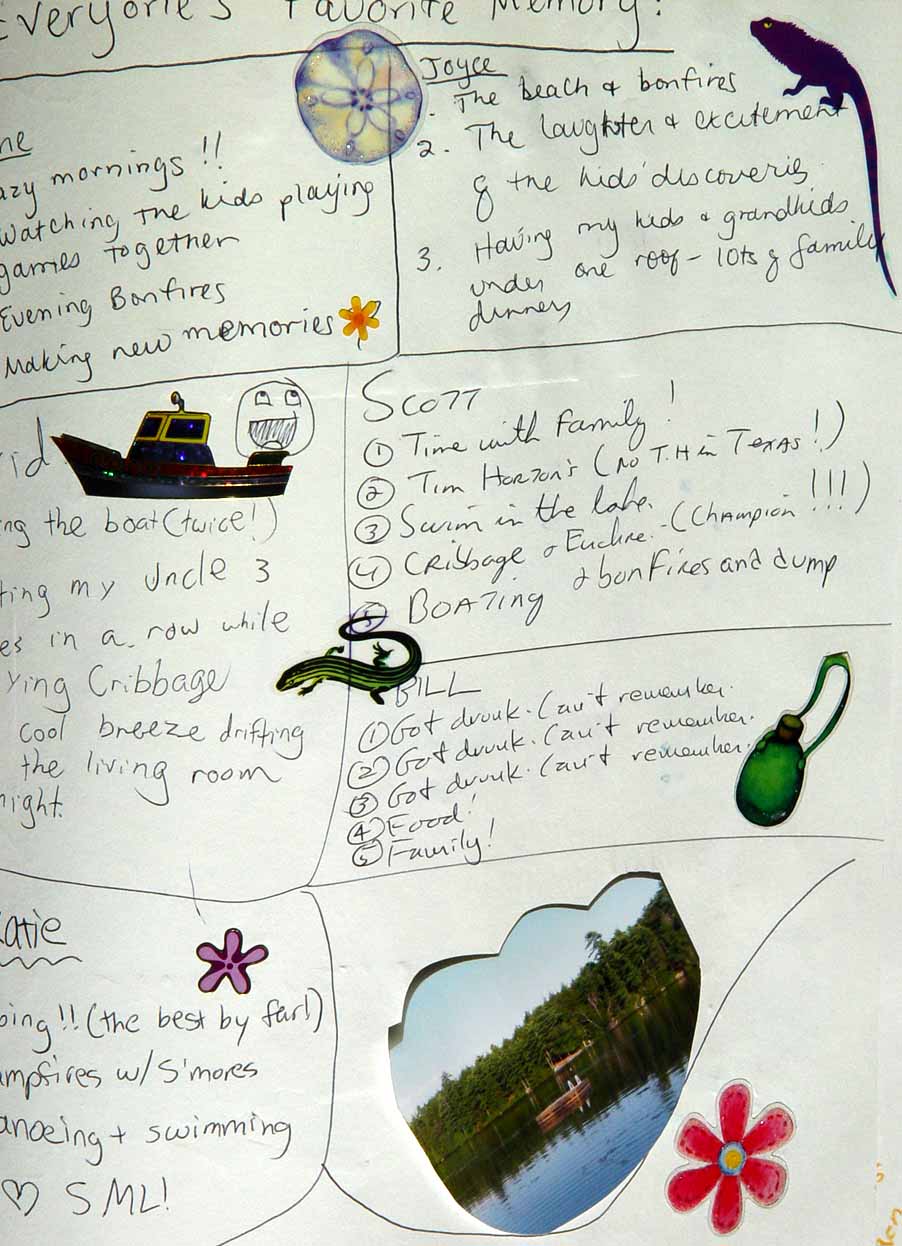 Everyone's Favorite Memory!
ne
azy mornings !!
Watching the kids playing
games together
Evening Bonfires
Making new memories
Joyce
1. The beach & bonfires
2. The laughter & excitement
of the kids' discoveries
3. Having my kids & grandkids
under one roof - lots of family
dinners
rid
ng the boat (twice!)
ting my Uncle 3
es in a row while
ying Cribbage
cool breeze drifting
the living room
night.
Scott
① Time with family!
② Tim Horton's (no T.H in Texas!)
③ Swim in the lake.
④ Cribbage & Euchre. (Champion!!!)
⑤ Boating & bonfires and dump
Bill
① Got drunk. Can't remember.
② Got drunk. Can't remember.
③ Got drunk. Can't remember.
④ Food!
⑤ Family!
Katie
bing!! (the best by far!)
ampfires w/ S'mores
anoeing + swimming
♡ SML!